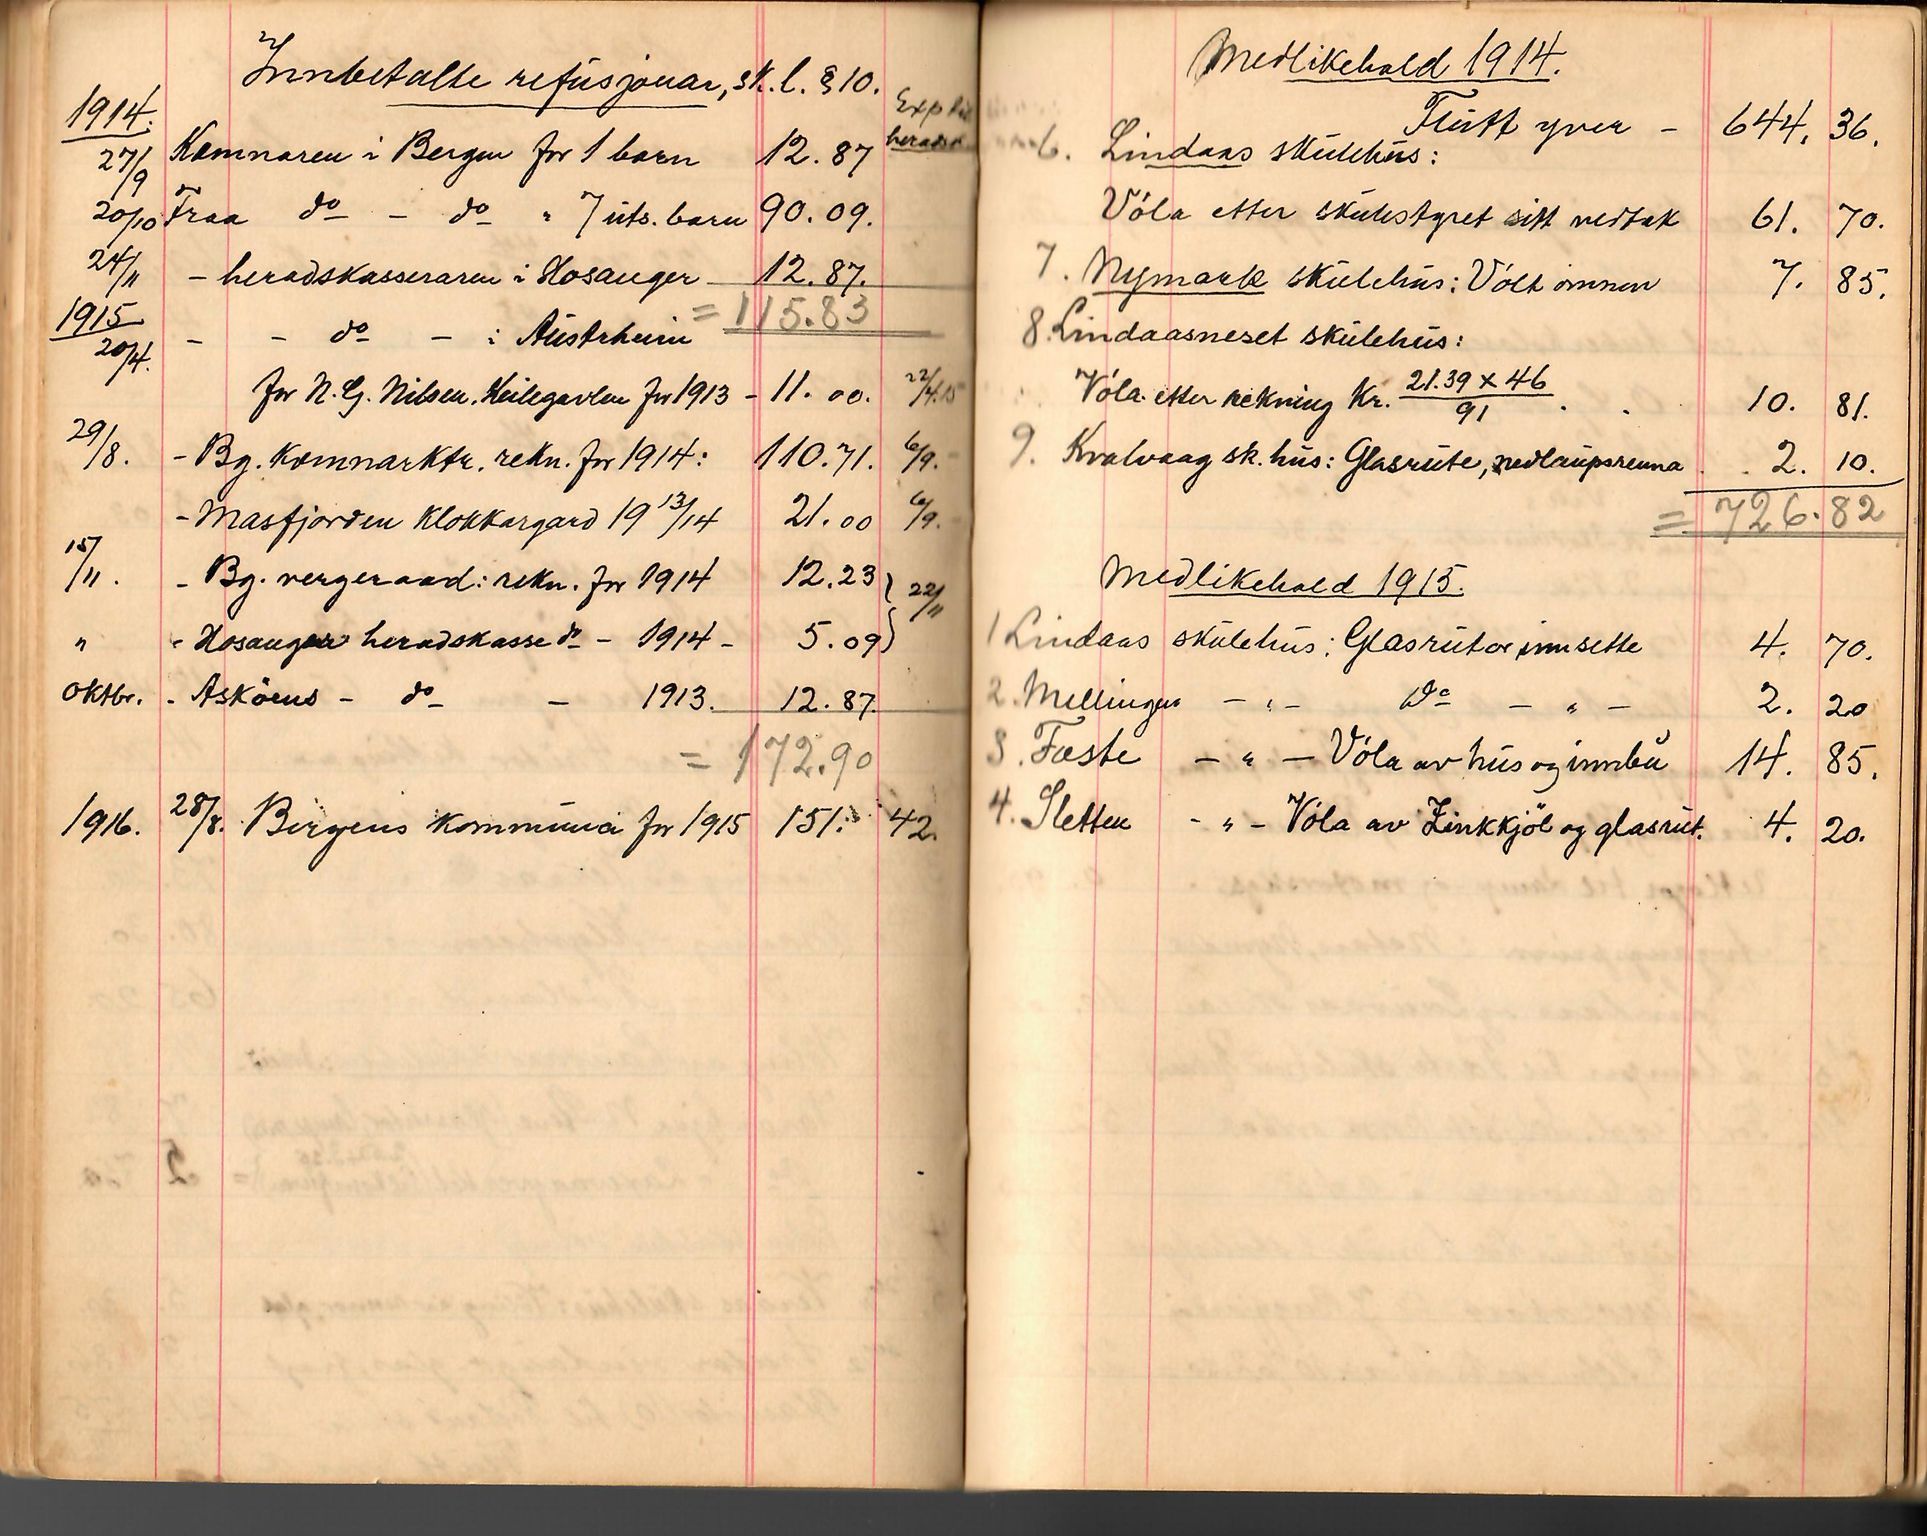 Innbetalte refusjonar, sk. l. § 10.
1914.
Exp. til
heradsk.
27/9 Kæmnaren i Bergen for 1 barn 12.87
20/10 Fraa do - do " 7 uts. barn 90.09.
24/11 - heradskasseraren i Hosanger 12.87.
= 115.83
1915
20/4. - - do - i Austrheim
for N. G. Nilsen, Keilegavlen for 1913 - 11.00. 22/4.15
29/8. - Bg. Kæmnarktr. rekn. for 1914: 110.71. 6/9.
- Masfjorden Klokkargard 19 13/14 21.00 6/9.
15/11. - Bg. vergeraad: rekn. for 1914 12.23 } 22/11
" - Hosanger heradskasse do - 1914 - 5.09
Oktbr. - Asköens - do - 1913. 12.87.
= 172.90
1916. 28/8. Bergens kommuna for 1915 151. 42.
Medlikehald 1914.
Flutt yver - 644. 36.
6. Lindaas skulehus:
Vóla etter skulestyret sitt vedtak 61. 70.
7. Nymark skulehus: Vólt omnen 7. 85.
8. Lindaasneset skulehus:
Vóla etter rekning Kr. 21.39 x 46 / 91 . . 10. 81.
9. Kvalvaag sk. hus: Glasrute, nedlaupsrenna . 2. 10.
= 726.82
Medlikehald 1915.
1 Lindaas skulehus: Glasrutor innsette 4. 70.
2. Mellingen - " - Do - " - 2. 20
3. Fæste - " - Vóla av hus og innbu 14. 85.
4. Sletten - " - Vóla av Zinkkjöl og glasrut. 4. 20.